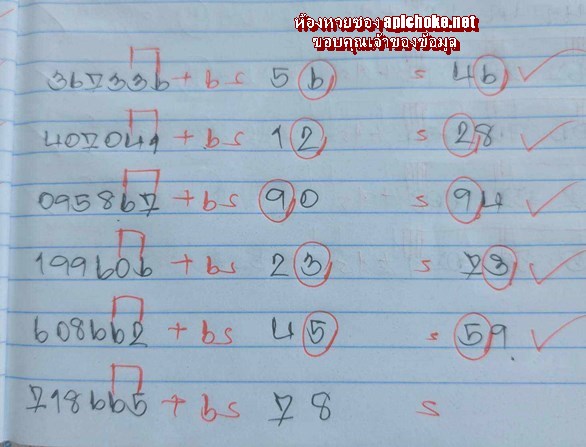 ห้องหวยซอง apichoke.net
ขอบคุณเจ้าของข้อมูล
367336 + bs 56 s 46
407041 + bs 12 s 28
095867 + bs 90 s 94
199606 + bs 23 s 73
608662 + bs 45 s 59
718665 + bs 78 s